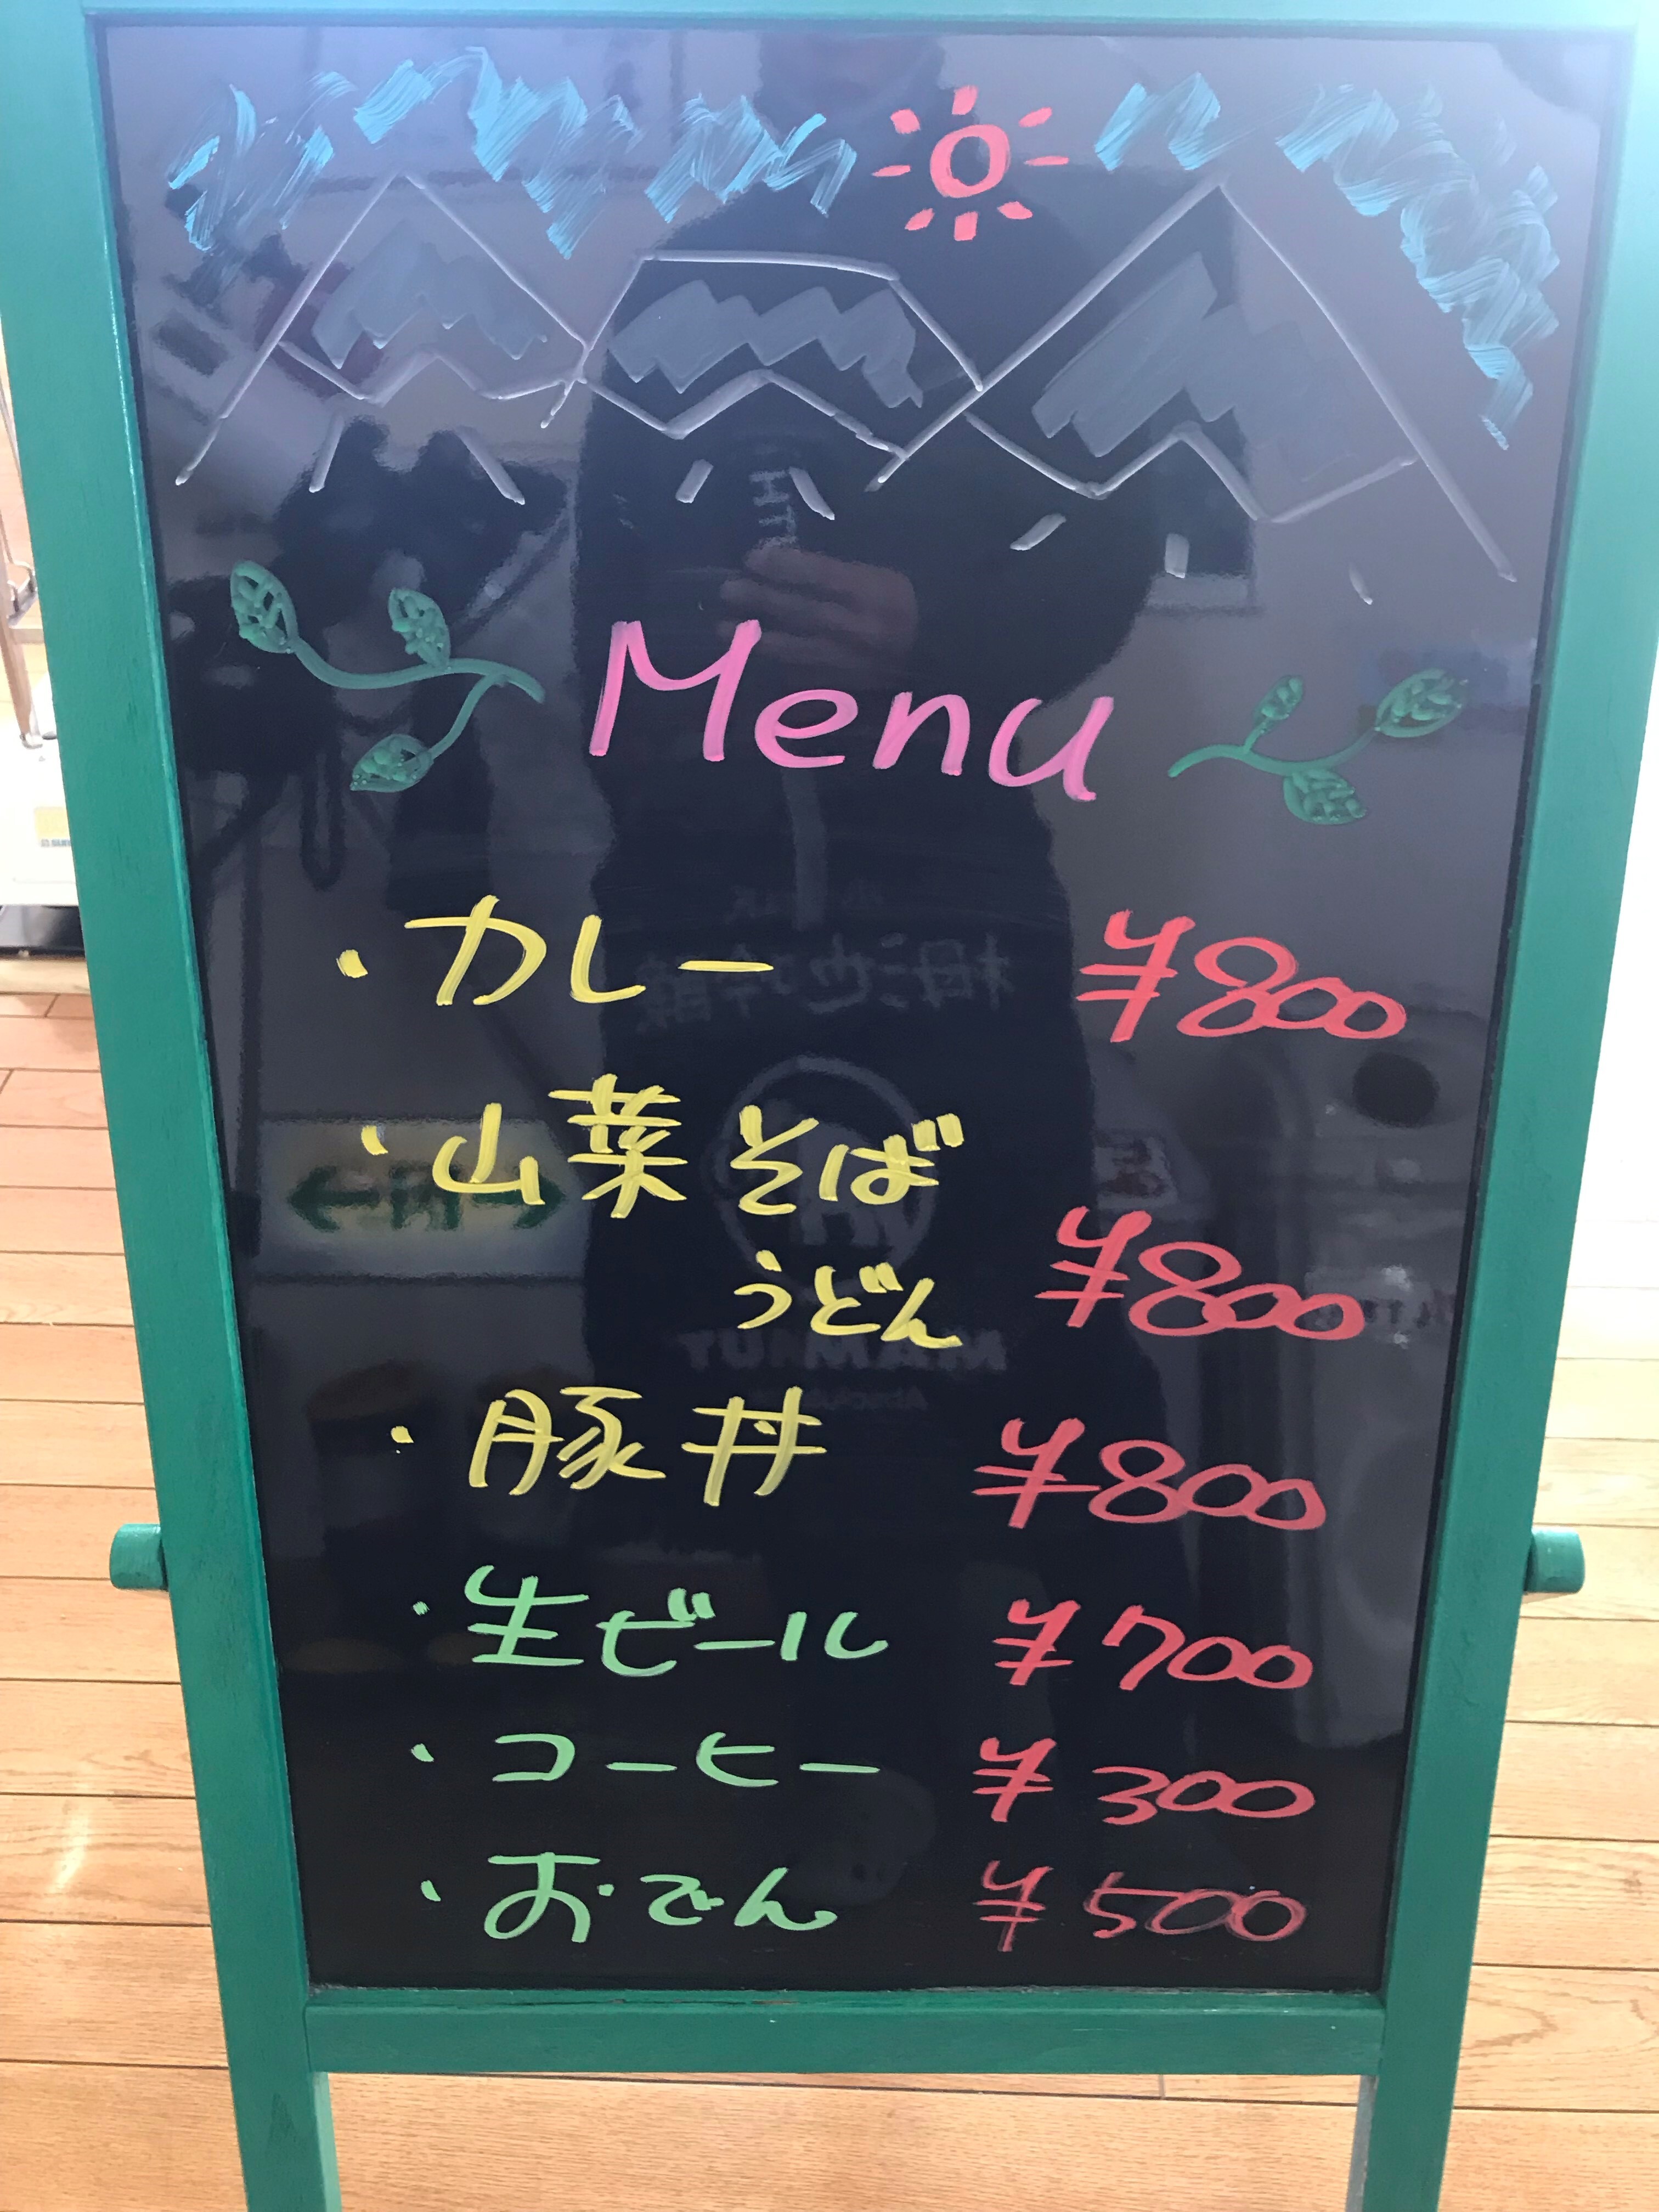 Menu
・カレー ¥800
・山菜そば
うどん ¥800
・豚丼 ¥800
・生ビール ¥700
・コーヒー ¥300
・おでん ¥500